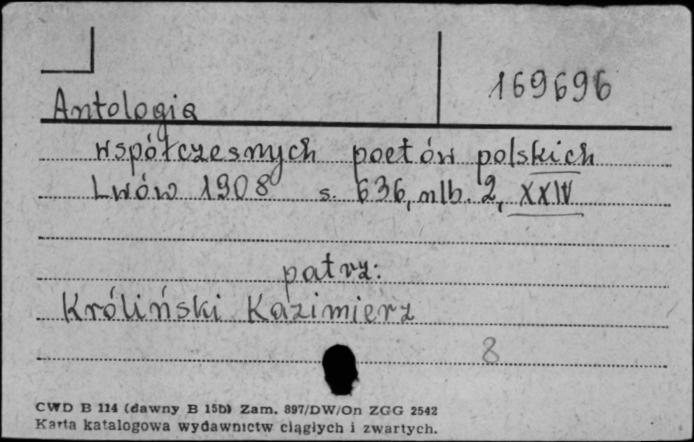 169696
Antologia
współczesnych poetów polskich
Lwów 1908 s. 636, nlb. 2, XXIV
patrz:
Króliński Kazimierz
8
CWD B 114 (dawny B 15b) Zam. 897/DW/On ZGG 2542
Karta katalogowa wydawnictw ciągłych i zwartych.